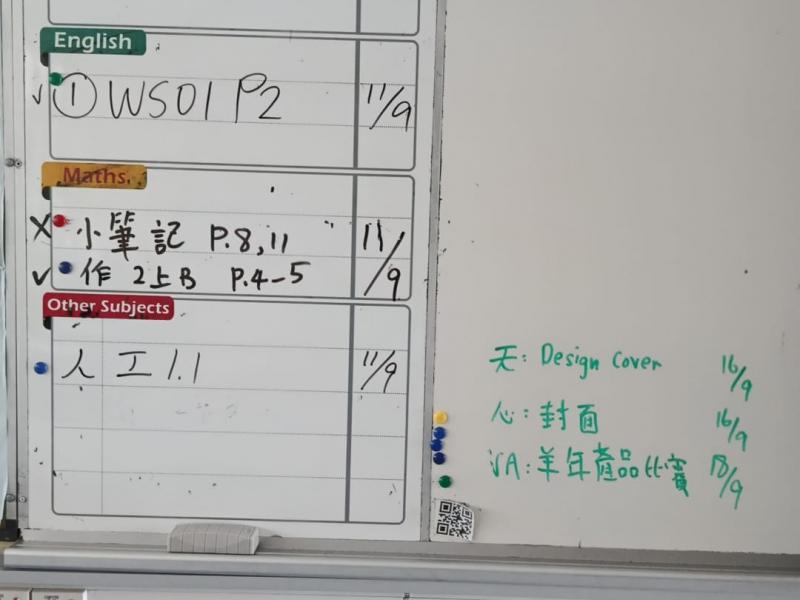 English
✓ ① WS01 P2 11/9
Maths
X 小筆記 P.8,11 11/9
✓ 作 2上B P.4-5
Other Subjects
人 工1.1 11/9
天: Design Cover 16/9
心: 封面 16/9
VA: 羊年產品比賽 18/9